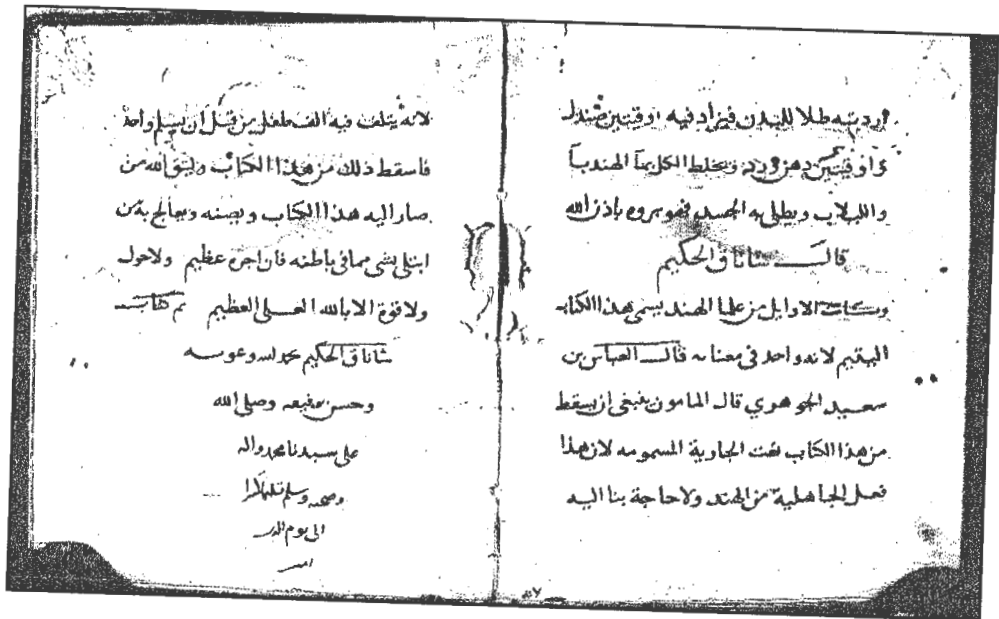 اردت به طلا للبدن فيزاد فيه اوقيتين صندل
واوقيتين دهن ورد ويخلط الكل بما الهندبا
واللبلاب ويطلى به الجسد فهو بروه باذن الله
قالــــ شاناق الحكيم
وكانت الاوايل من علما الهند يسمى هذا الكتابه
اليتيم لانه واحد في معناه قالــ العباس بن
سعيد الجوهري قال المامون ينبغي ان يسقط
من هذا الكتاب نعت الجارية المسمومه لان هذا
فعل الجاهلية من الهند ولا حاجة بنا اليه
لانه يتلف فيه الف طفل من قبل ان يسلم واحد
فاسقط ذلك من هذا الكتاب وليتق الله من
صار اليه هذا الكتاب ويصنه ويعالج به من
ابتلى بشي مما في باطنه فان اجره عظيم ولا حول
ولا قوة الا بالله العــلي العظيم تم كتابــ
شاناق الحكيم بحمد الله وعونه
وحسن توفيقه وصلى الله
على سيدنا محمد واله
وصحبه وسلم تسليما كثيرا
الى يوم الدين
امين